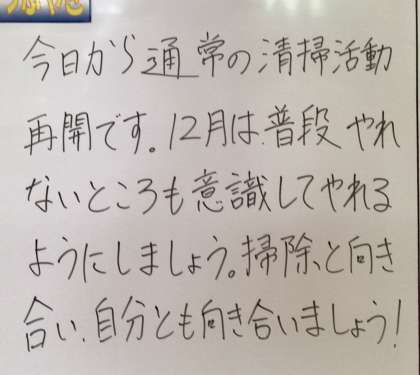 今日から通常の清掃活動
再開です。12月は普段やれ
ないところも意識してやれる
ようにしましょう。掃除と向き
合い、自分とも向き合いましょう!